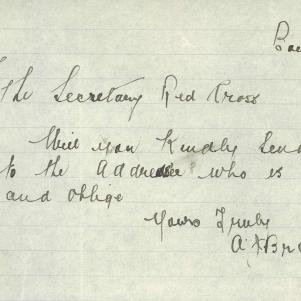 The Secretary Red Cross
Will you Kindly Send
to the Addressee who is
and oblige
Yours Truly
A